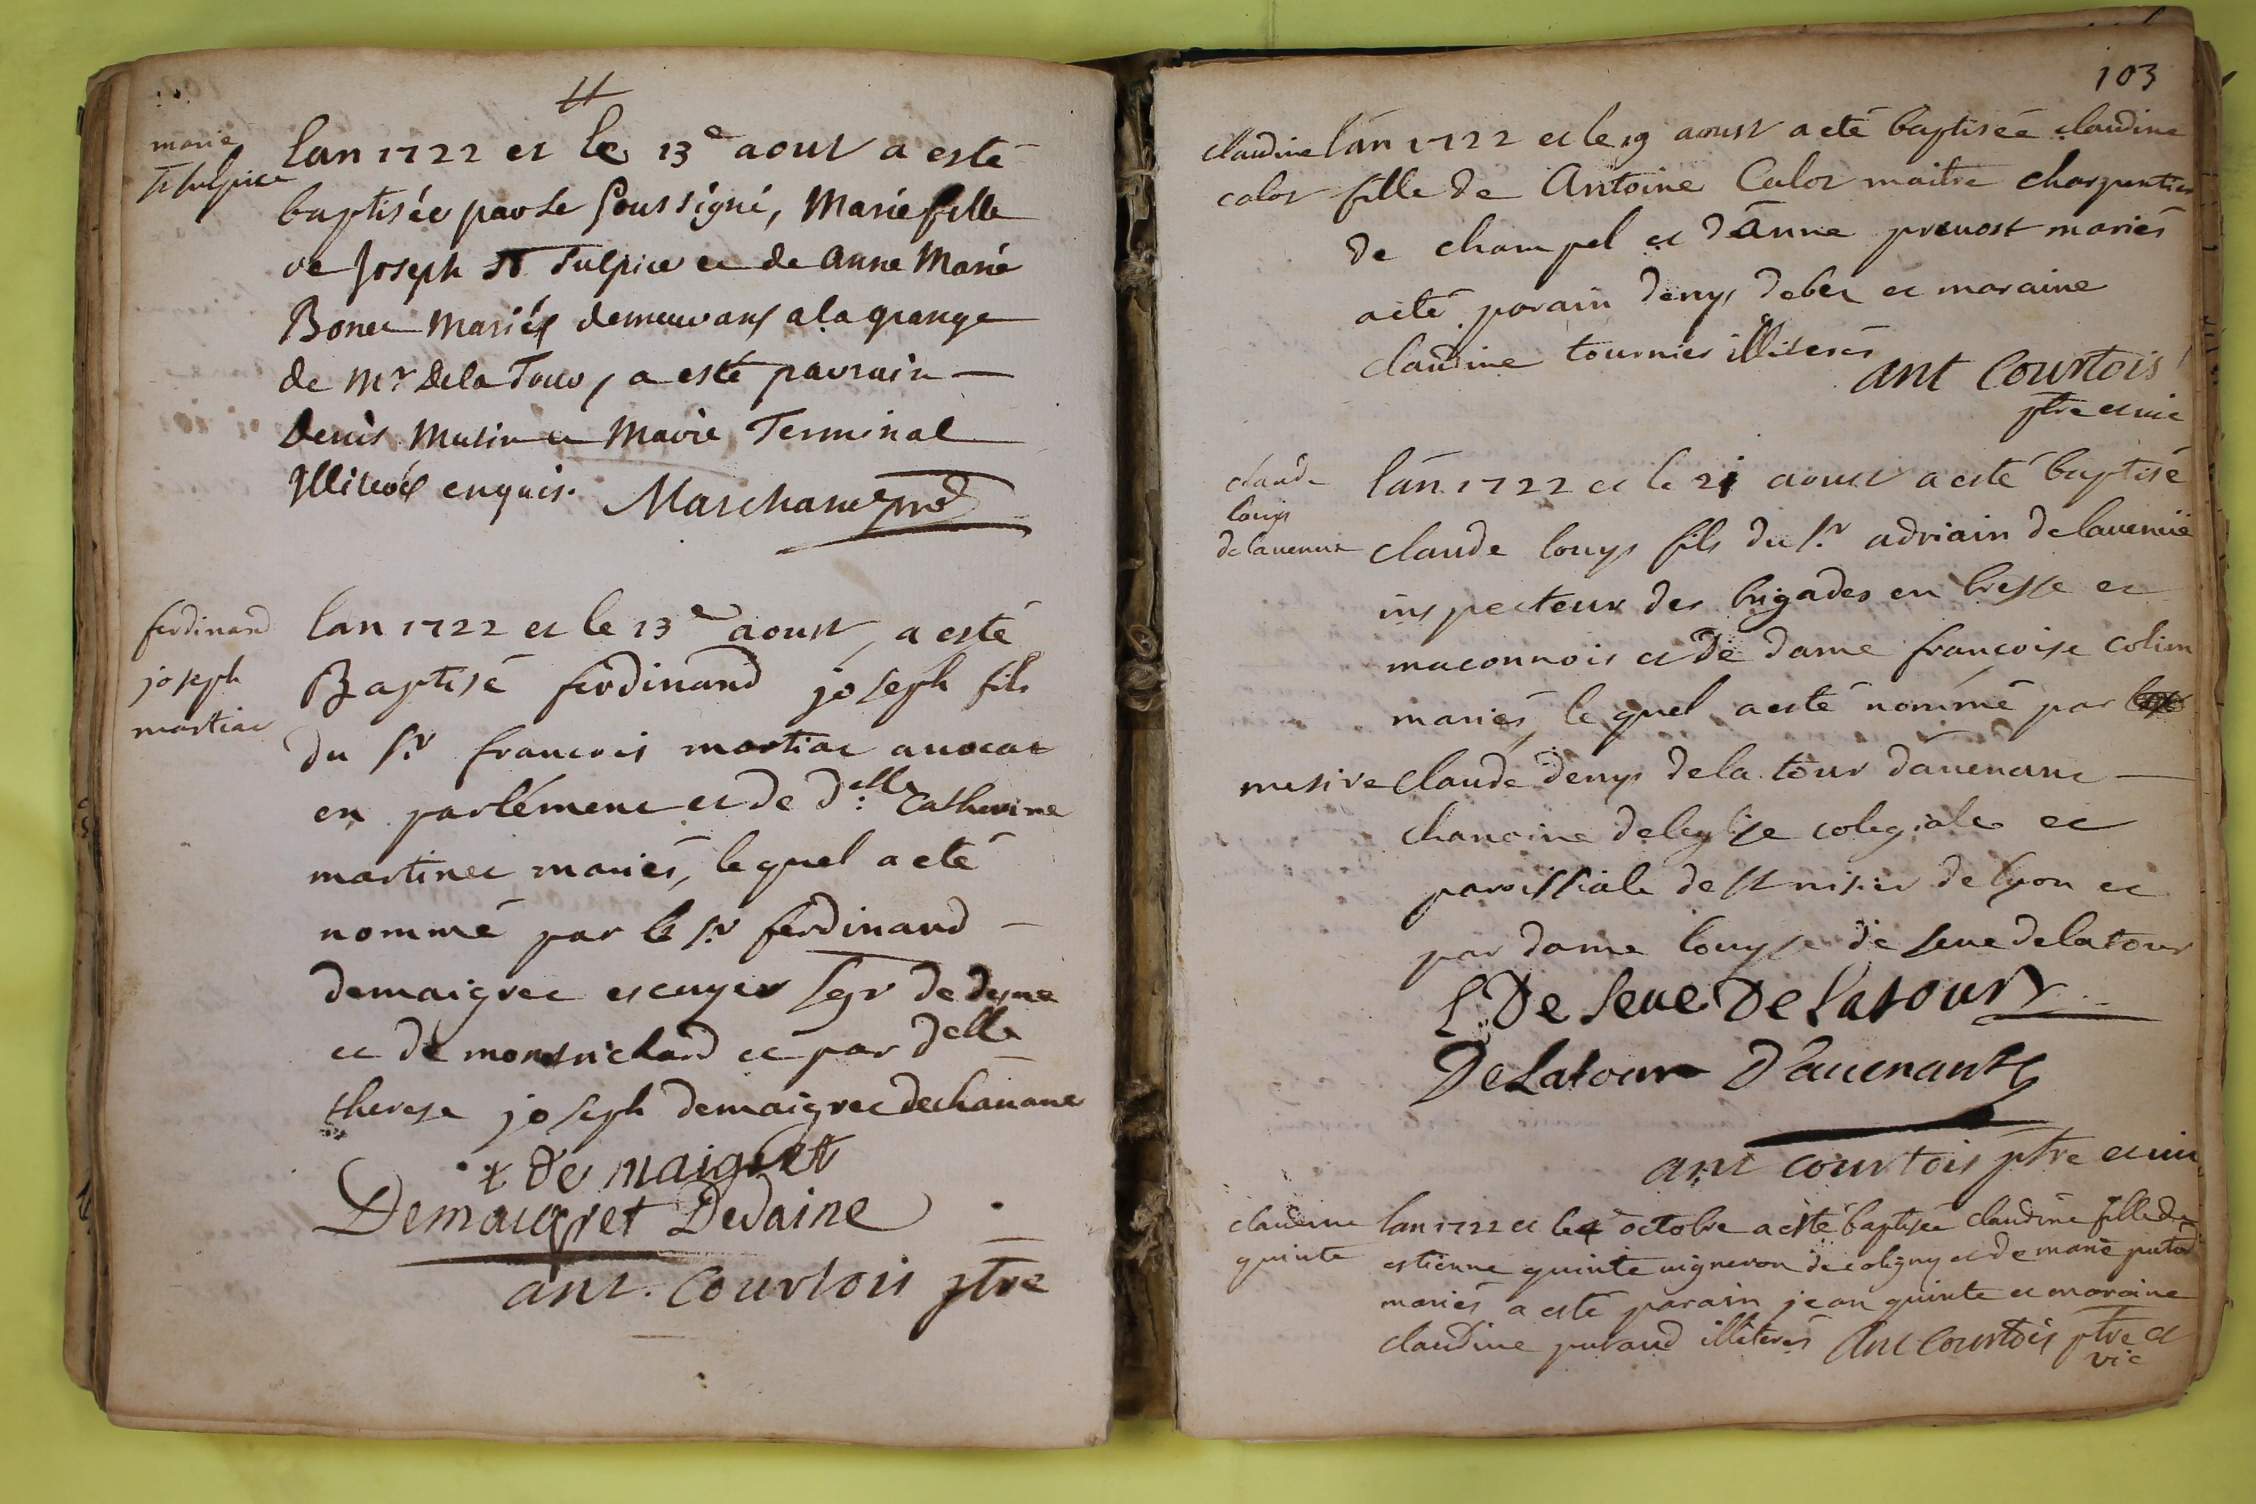 marie
St sulpice
Lan 1722 et le 13e aout a esté
baptisée par le soussigné, Marie fille
de Joseph St Sulpice et de anne Marie
Bonet Mariés demeurans a la grange
de Mr De la Tour, a esté parrain
Denis Mutin et Marie Terminal
Illiterés enquis. Marchand
ferdinand
joseph
martinet
lan 1722 et le 13e aoust, a esté
Baptisé ferdinand joseph fils
du sr francois martinet avocat
en parlément et de delle Catherine
martinet mariés, le quel a eté
nommé par le sr ferdinand
demaigret escuyer sgr de desne
et de montrichard et par delle
therese joseph demaigret de
t de maigret
Demaigret Dedaine
ant. Courtois ptre
103
claudine
calot
lán 1722 et le 19 aoust a eté baptisée claudine
fille de Antoine Calot maitre charpentier
de champel et dánne preuost mariés
a eté parain denys debet et maraine
claudine tournier illiterés
ant Courtois
ptre et vic
claude
louys
delauenuë
lán 1722 et le 21 aoust a esté baptisé
claude louys fils du sr adriain delauenuë
inspecteur des brigades en bresse et
maconnois et de dame françoise colin
mariés, le quel a esté nommé par
mesire claude denys de la tour dauenant
chanoine de leglise colegiale et
paroissiale de st nisier de lyon et
par dame louyse de seue de la tour
L. De Seue De Latour
De Latour D'auenant
ant courtois ptre et vic
claudine
quinte
lan 1722 et le 4e octobre a esté baptisée claudine fille de
estienne quinte uigneron de coligny et de marie
mariés a esté parain jean quinte et maraine
claudine putaud illiterés Ant Courtois ptre et
vic